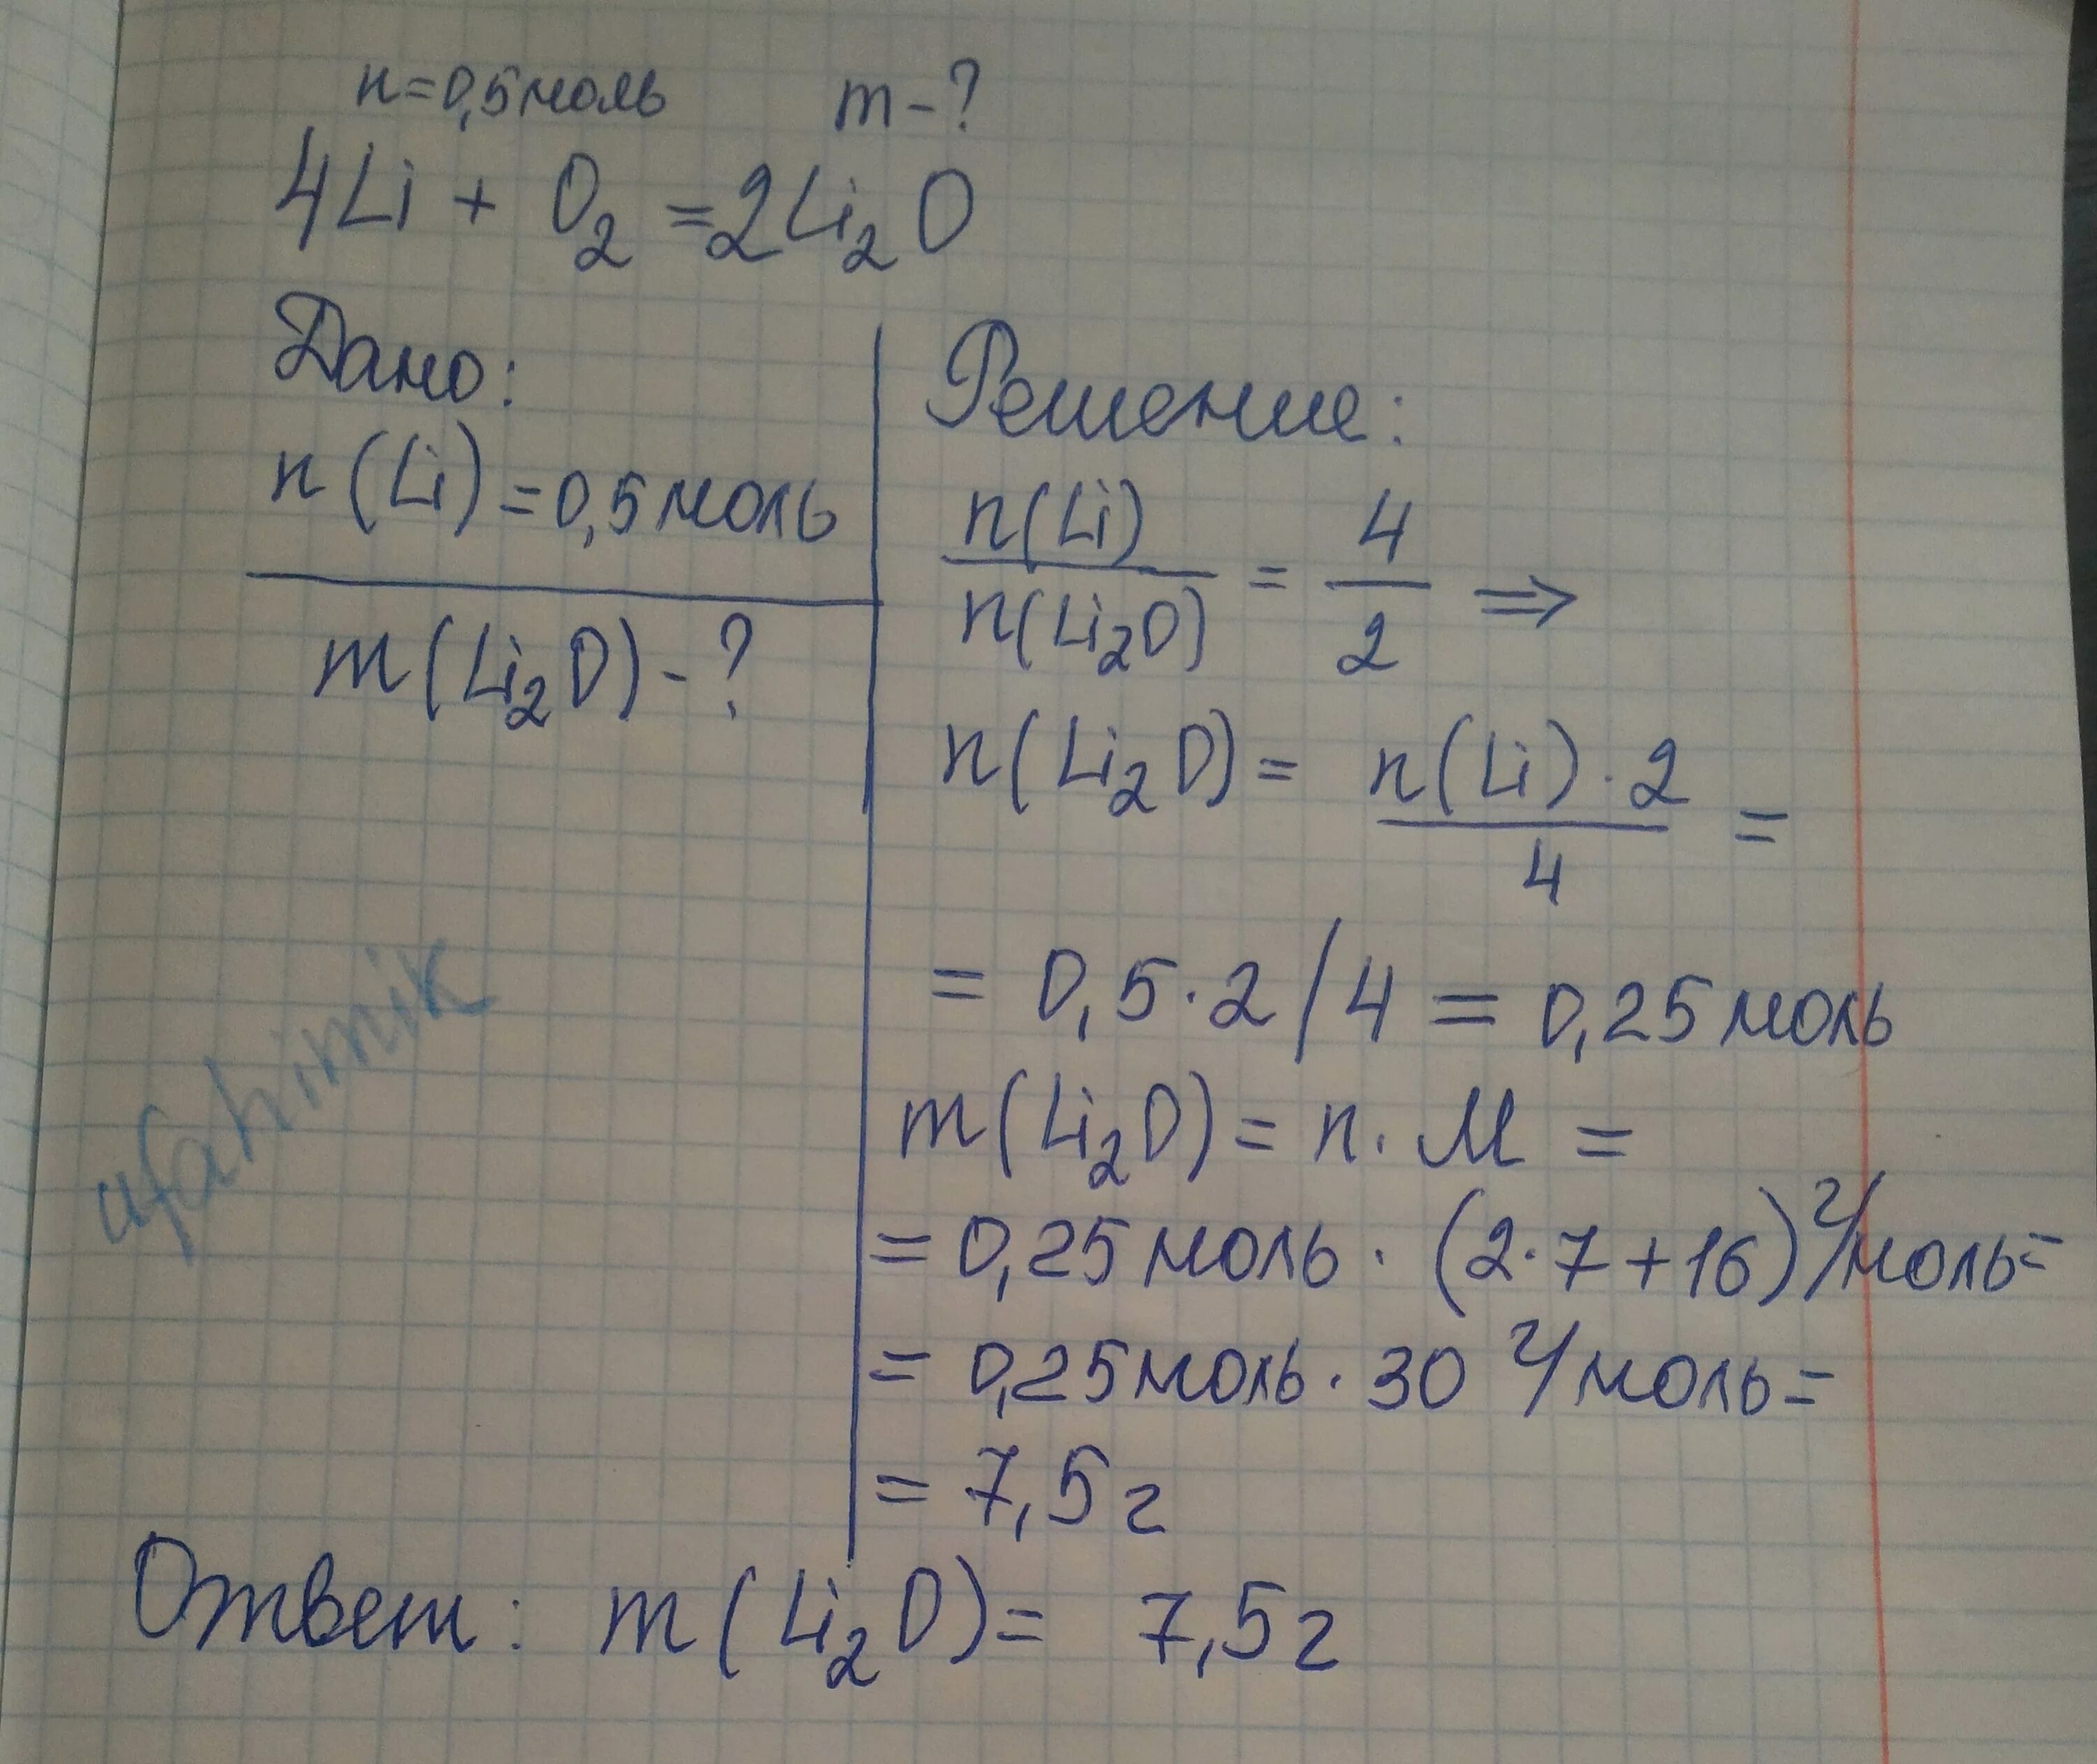 n=0,5моль m-?
4Li + O₂ =2Li₂O
Дано:
n(Li)=0,5моль
m(Li₂O)-?
Решение:
n(Li)/n(Li₂O) = 4/2 ⇒
n(Li₂O)= n(Li)·2/4 =
= 0,5·2/4 = 0,25моль
m(Li₂O)= n·M =
= 0,25моль·(2·7+16)г/моль=
= 0,25моль·30 г/моль=
= 7,5г
ufahimik
Ответ: m(Li₂O)= 7,5г